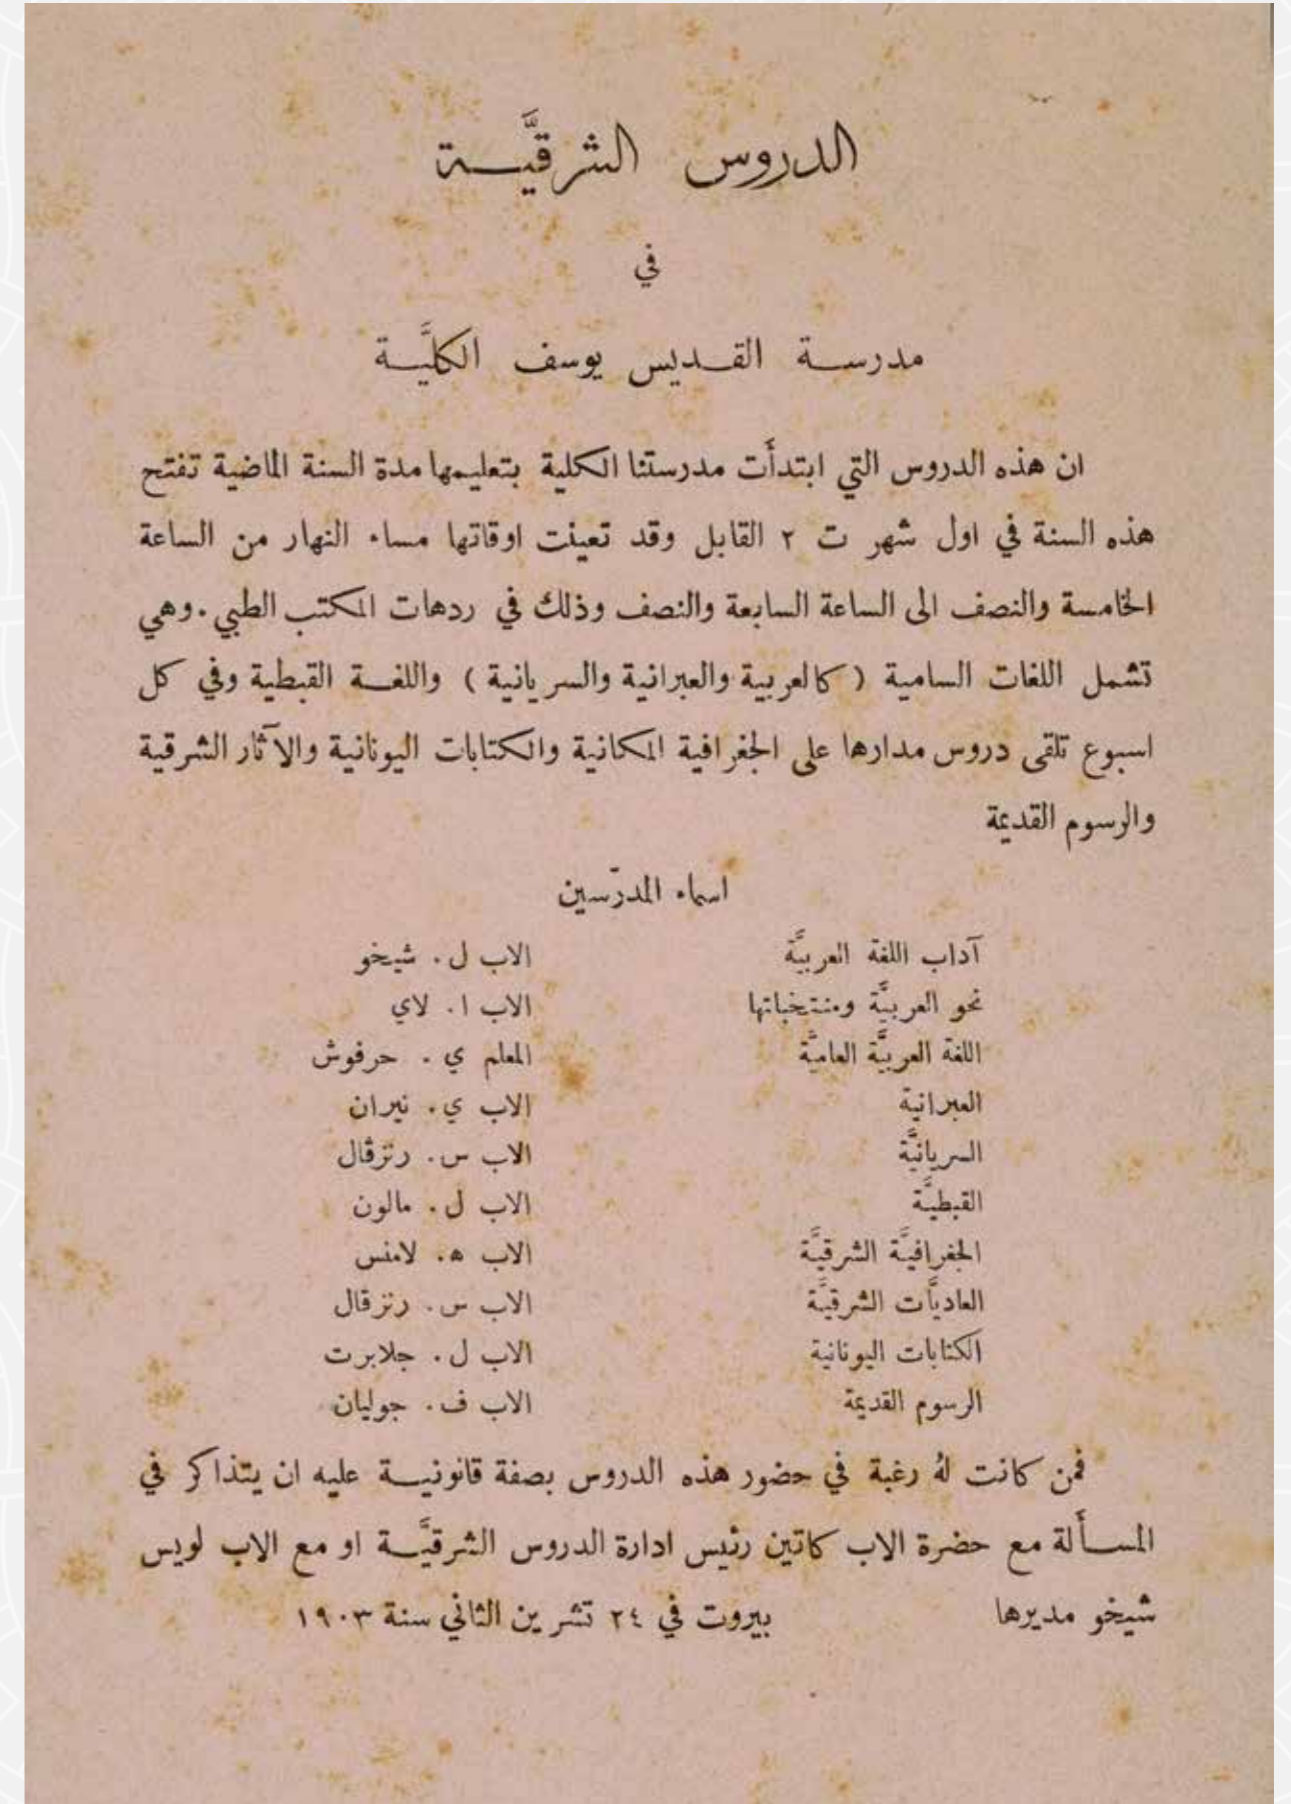 الدروس الشرقيَّة
في
مدرسة القديس يوسف الكليَّة
ان هذه الدروس التي ابتدأَت مدرستنا الكلية بتعليمها مدة السنة الماضية تفتح
هذه السنة في اول شهر ت ٢ القابل وقد تعينت اوقاتها مساء النهار من الساعة
الخامسة والنصف الى الساعة السابعة والنصف وذلك في ردهات المكتب الطبي. وهي
تشمل اللغات السامية (كالعربية والعبرانية والسريانية) واللغة القبطية وفي كل
اسبوع تلقى دروس مدارها على الجغرافية المكانية والكتابات اليونانية والآثار الشرقية
والرسوم القديمة
اسماء المدرّسين
آداب اللغة العربيَّة الاب ل. شيخو
نحو العربيَّة ومنتخباتها الاب ا. لاي
اللغة العربيَّة العاميَّة المعلم ي. حرفوش
العبرانية الاب ي. نيران
السريانيَّة الاب س. رنزڤال
القبطيَّة الاب ل. مالون
الجغرافيَّة الشرقيَّة الاب ه. لامنس
العاديَّات الشرقيَّة الاب س. رنزڤال
الكتابات اليونانية الاب ل. جلابرت
الرسوم القديمة الاب ف. جوليان
فمن كانت لهُ رغبة في حضور هذه الدروس بصفة قانونية عليه ان يتذاكر في
المسأَلة مع حضرة الاب كاتين رئيس ادارة الدروس الشرقيَّة او مع الاب لويس
شيخو مديرها بيروت في ٢٤ تشرين الثاني سنة ١٩٠٣